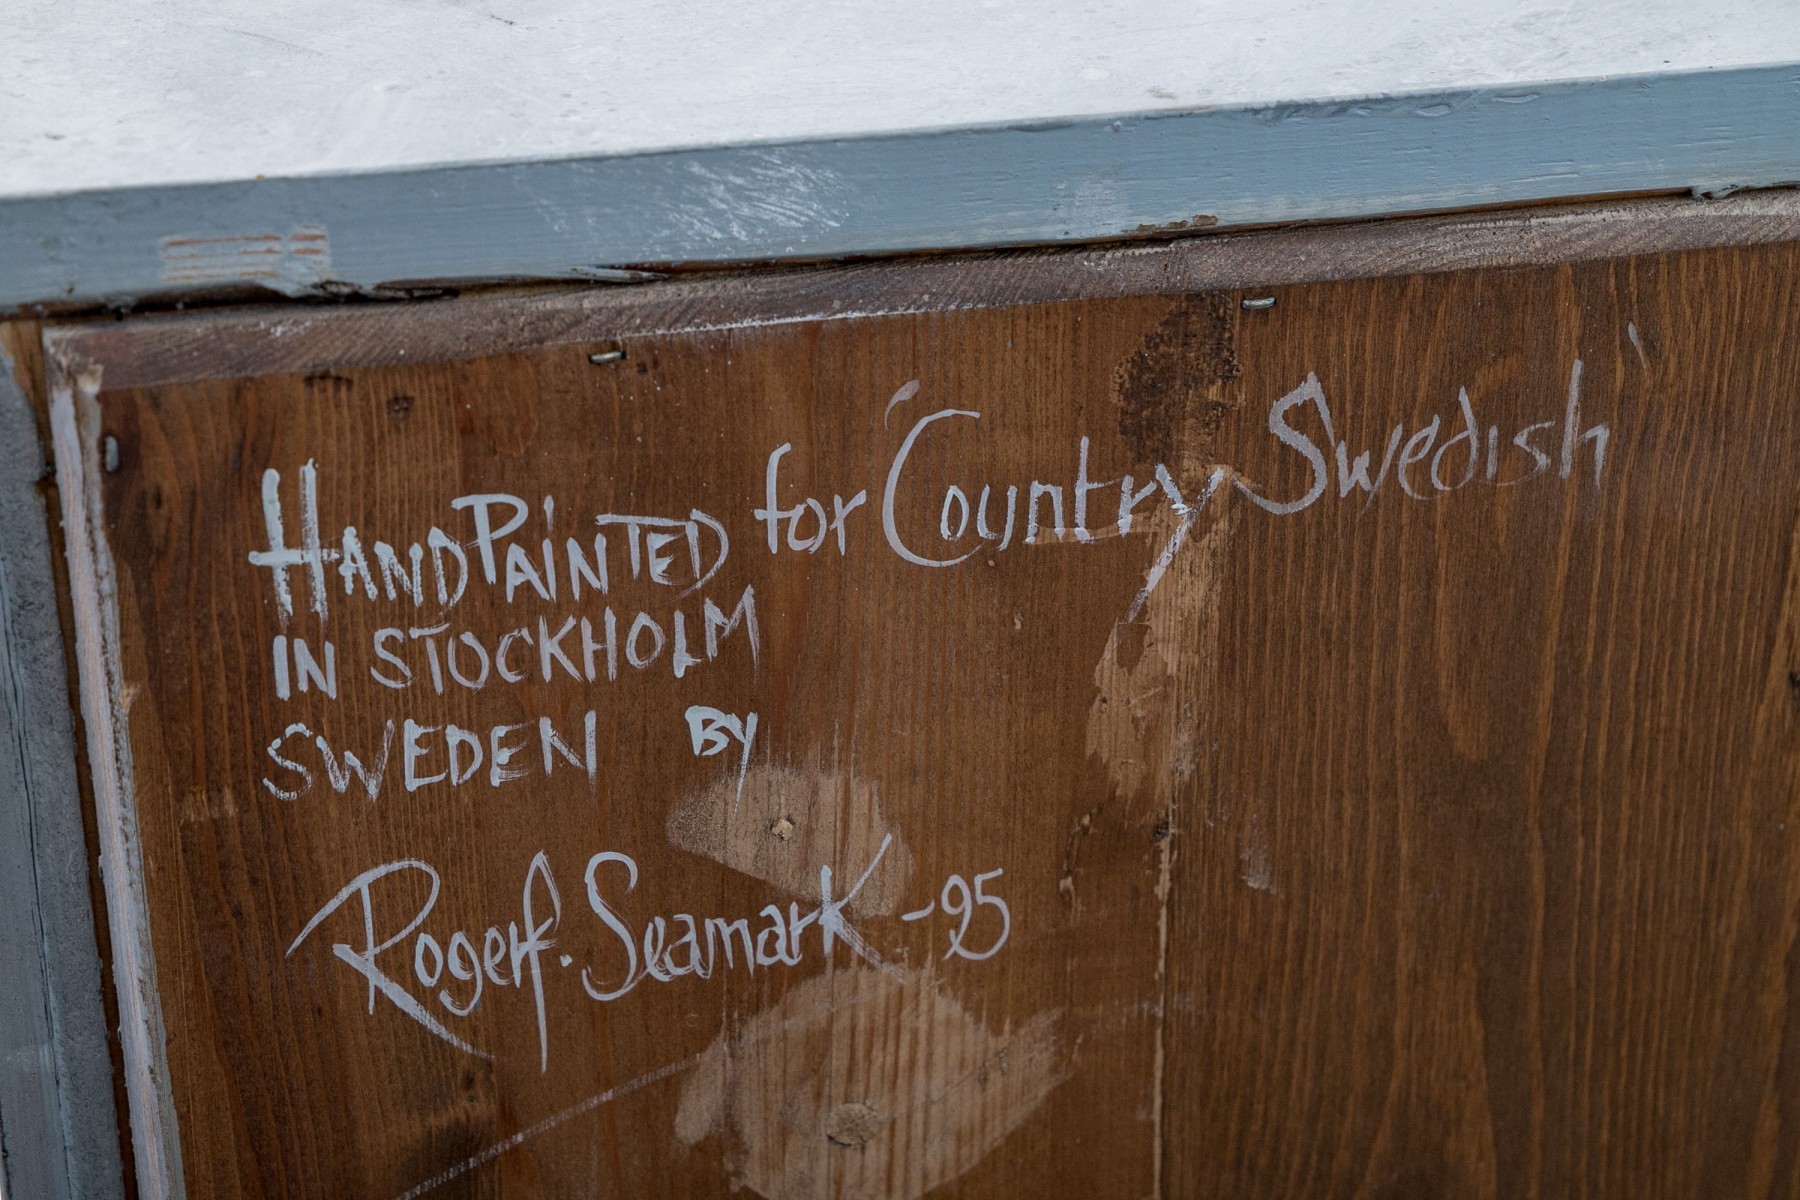 HANDPAINTED for 'Country Swedish'
IN STOCKHOLM
SWEDEN BY
Roger f. Seamark -95